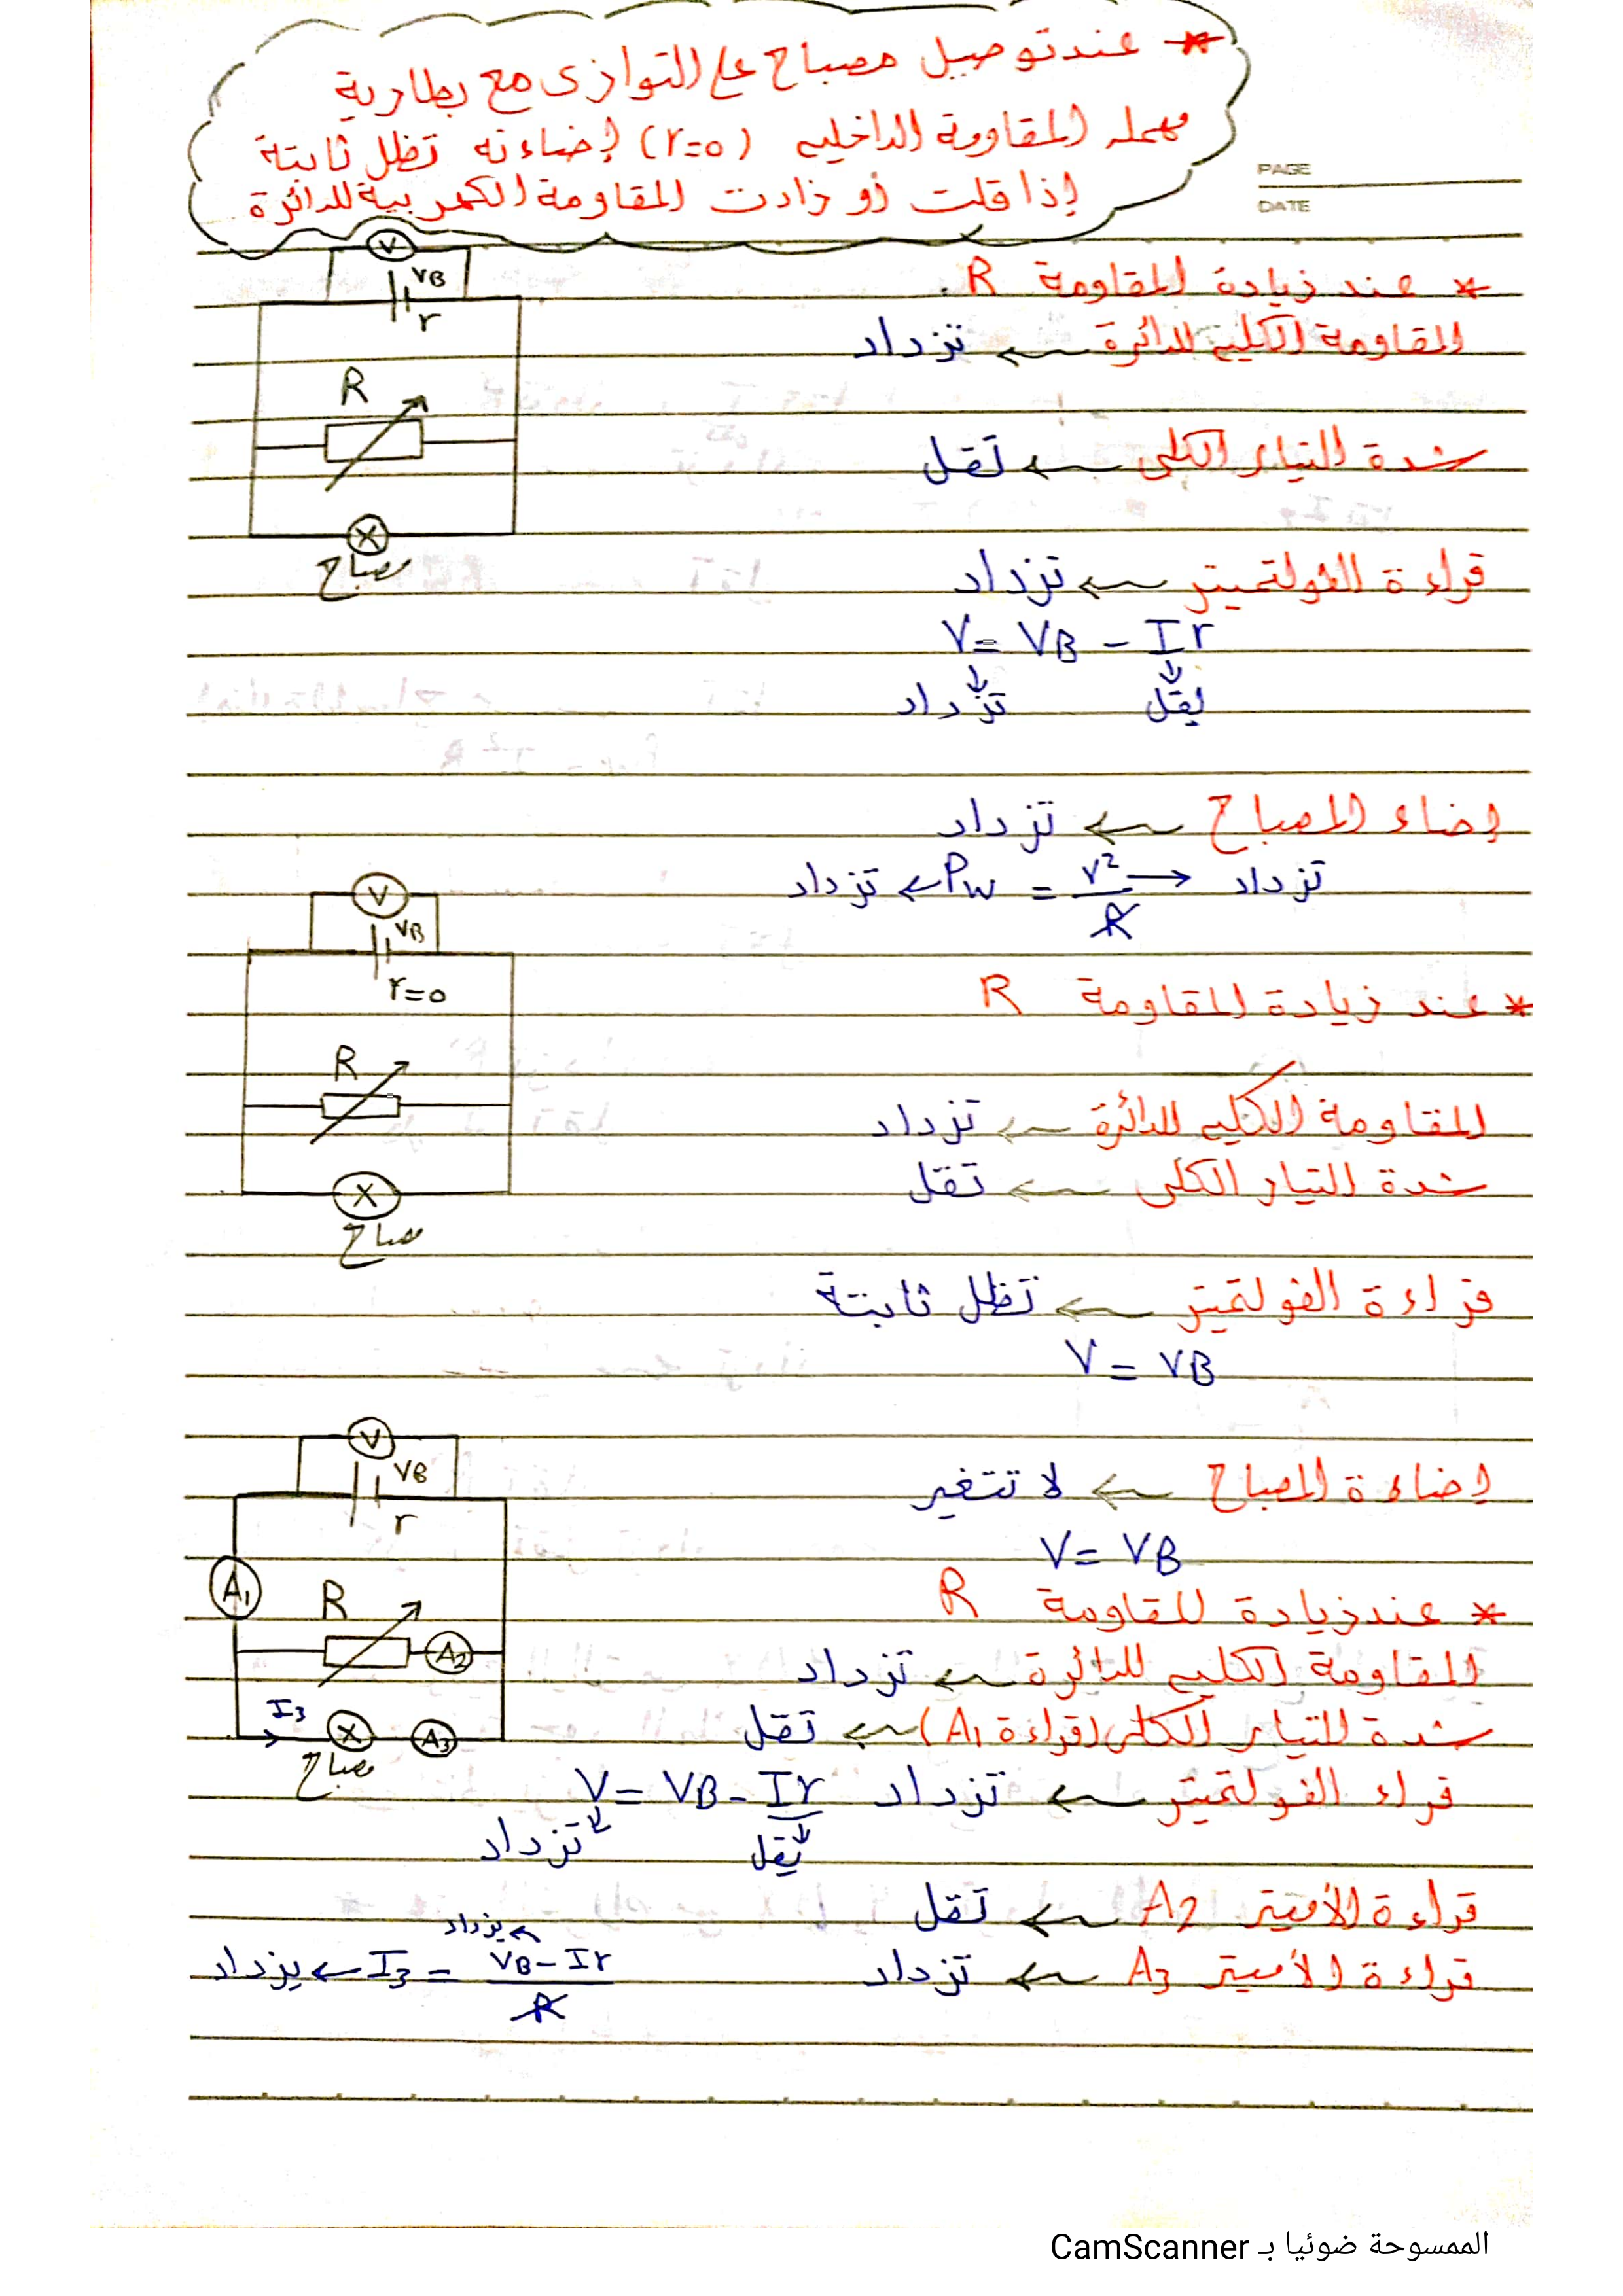 * عند توصيل مصباح على التوازى مع بطارية
مهمله المقاومة الداخليه (r=0) إضاءته تظل ثابتة
إذا قلت أو زادت المقاومة الكهربية للدائرة
PAGE
DATE
V
VB
r
R
مصباح
* عند زيادة المقاومة R
المقاومة الكليه للدائرة ← تزداد
شدة التيار الكلى ← تقل
قراءة الفولتميتر ← تزداد
V = VB - Ir
تزداد يقل
إضاء المصباح ← تزداد
تزداد ← Pw = V²/R → تزداد
V
VB
r=0
R
مصباح
* عند زيادة المقاومة R
المقاومة الكليه للدائرة ← تزداد
شدة التيار الكلى ← تقل
قراءة الفولتميتر ← تظل ثابتة
V = VB
إضاءة المصباح ← لا تتغير
V = VB
V
VB
r
A1
R
A2
I3
A3
مصباح
* عند زيادة المقاومة R
المقاومة الكليه للدائرة ← تزداد
شدة التيار الكلى (قراءة A1) ← تقل
قراء الفولتميتر ← تزداد V = VB - Ir
تزداد يقل
قراءة الأميتر A2 ← تقل
قراءة الأميتر A3 ← تزداد
يزداد
يزداد ← I3 = VB - Ir / R
الممسوحة ضوئيا بـ CamScanner